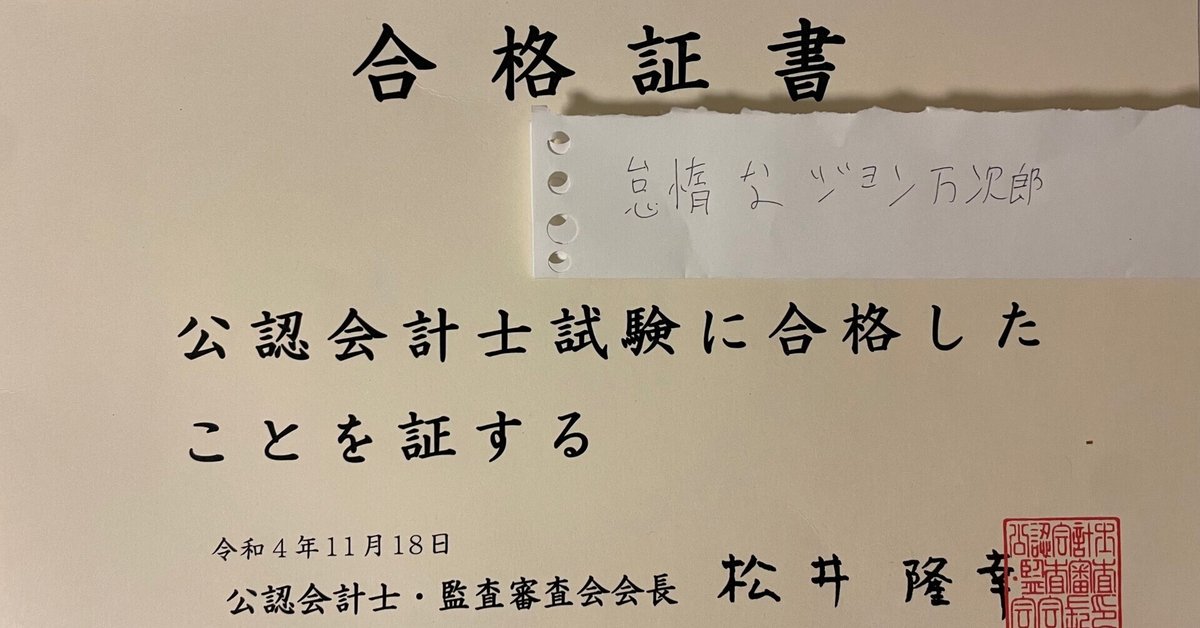 合格証書
怠惰なジョン万次郎
公認会計士試験に合格した
ことを証する
令和4年11月18日
公認会計士・監査審査会会長 松井隆幸